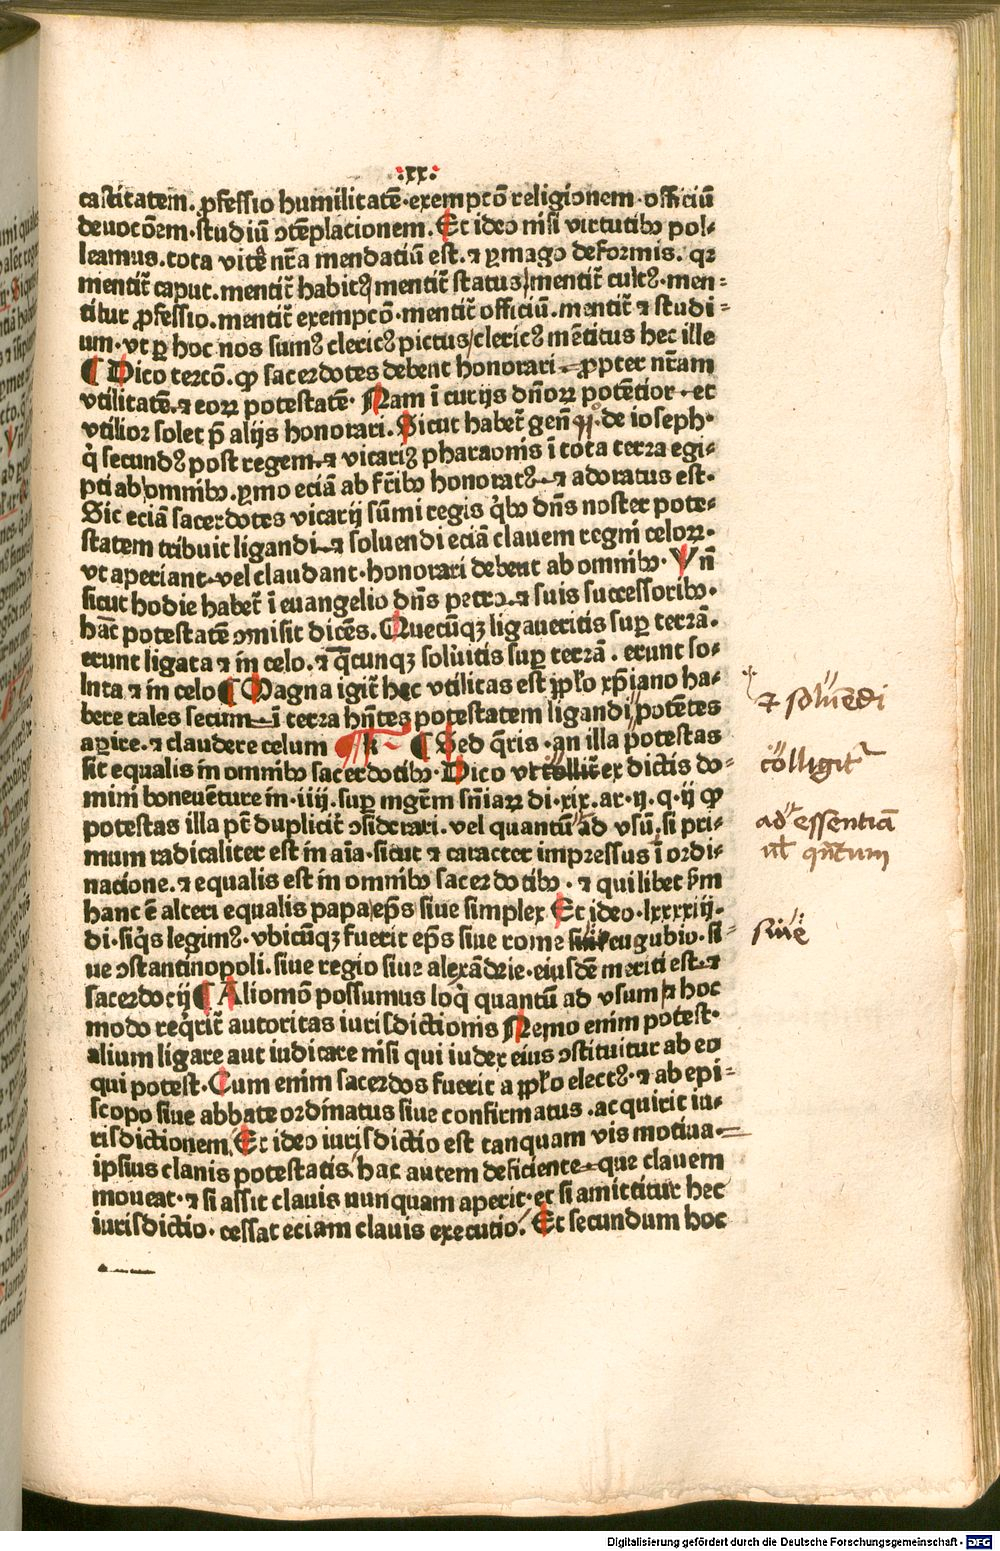 ·xx·
castitatem. ꝓfessio humilitatē·exempcō religionem·officiū
deuocōem·studiū ↄtēplacionem. Et ideo nisi virtutibꝰ pol⸗
leamus. tota vite nr̄a mendatiū est. ⁊ ymago deformis. qꝛ
mentit̄ caput. mentit̄ habitꝰ mentit̄ status/mentit̄ cultꝰ· men⸗
titur ꝓfessio. mentit̄ exempcō·mentit̄ officiū. mentit̄ ⁊ studi⸗
um·vt ꝑ hoc nos sumꝰ clericꝰ pictus/clericꝰ mētitus hec ille
¶ Dico tercō. ꝙ sacerdotes debent honorari ꝓpter nr̄am
vtilitatē.⁊ eoꝝ potestatē· Nam ī curijs dn̄oꝝ potētior · et
vtilior solet p̄ alijs honorari. Sicut habet̄ gen̄ ·de ioseph·
q̇ secundꝰ post regem.⁊ vicariꝰ pharaonis ī tota terra egi⸗
pti ab omnibꝰ. pͥmo eciā ab fr̄ibꝰ honoratꝰ ⁊ adoratus est·
Sic eciā sacerdotes vicarij sūmi regis q̇bꝰ dn̄s noster pote⸗
statem tribuit ligandi ⁊ soluendi eciā clauem regni celoꝝ·
vt aperiant vel claudant·honorari debent ab omnibꝰ· Vn̄
sicut hodie habet̄ ī euangelio dn̄s petro.⁊ suis successoribꝰ·
hāc potestatē ↄmisit dicēs. Quecūqꝫ ligaueritis suꝑ terrā·
erunt ligata ⁊ in celo. ⁊ q̄cunqꝫ soluitis suꝑ terrā . erunt so⸗
luta ⁊ in celo ¶ Magna igit̄ hec vtilitas est ꝓplo xp̄iano ha⸗
bere tales secum ī terra hn̄tes potestatem ligandi potētes
aꝑire.⁊ claudere celum k ¶ Sed q̄ris ·an illa potestas
sit equalis in omnibꝰ sacerdotibꝰ· Dico vt collit̄ ex dictis do⸗
mini boneuēture in·iiij·suꝑ mgr̄m sn̄iaꝝ di·xix·ar·ij·q·ij ꝙ
potestas illa pt̄ duplicit̄ ↄsiderari. vel quantū ad vsū. si pri⸗
mum radicaliter est in aīa·sicut ⁊ caracter impressus ī ordi⸗
nacione.⁊ equalis est in omnibꝰ sacerdotibꝰ·⁊ quilibet sͫm
hanc ē alteri equalis papa/ep̄s siue simplex Et ideo·lxxxxiij·
di·siq̇s legimꝰ·vbicūqꝫ fuerit ep̄s siue rome eugubio·si⸗
ue ↄstantinopoli. siue regio siue alexādrie·eiusdē meriti est·⁊
sacerdocij ¶ Aliomō possumus loq̇ quantū ad vsum ⁊ hoc
modo req̇rit̄ autoritas iurisdictionis Nemo enim potest·
alium ligare aut iudicare nisi qui iudex eius ↄstituitur ab eo
qui potest·Cum enim sacerdos fuerit a ꝓplo electꝰ·⁊ ab epi⸗
scopo siue abbate ordinatus siue confirmatus .acquirit iu⸗
risdictionem Et ideo iurisdictio est tanquam vis motiua
ipsius clauis potestatis·hac autem deficiente que clauem
moueat·⁊ si assit clauis nunquam aperit·et si amittitur hec
iurisdictio·cessat eciam clauis executio. Et secundum hoc
⁊ solūedi
colligit᷑
ad essentiā
vl̄ qn̄tum
siue
Digitalisierung gefördert durch die Deutsche Forschungsgemeinschaft - DFG